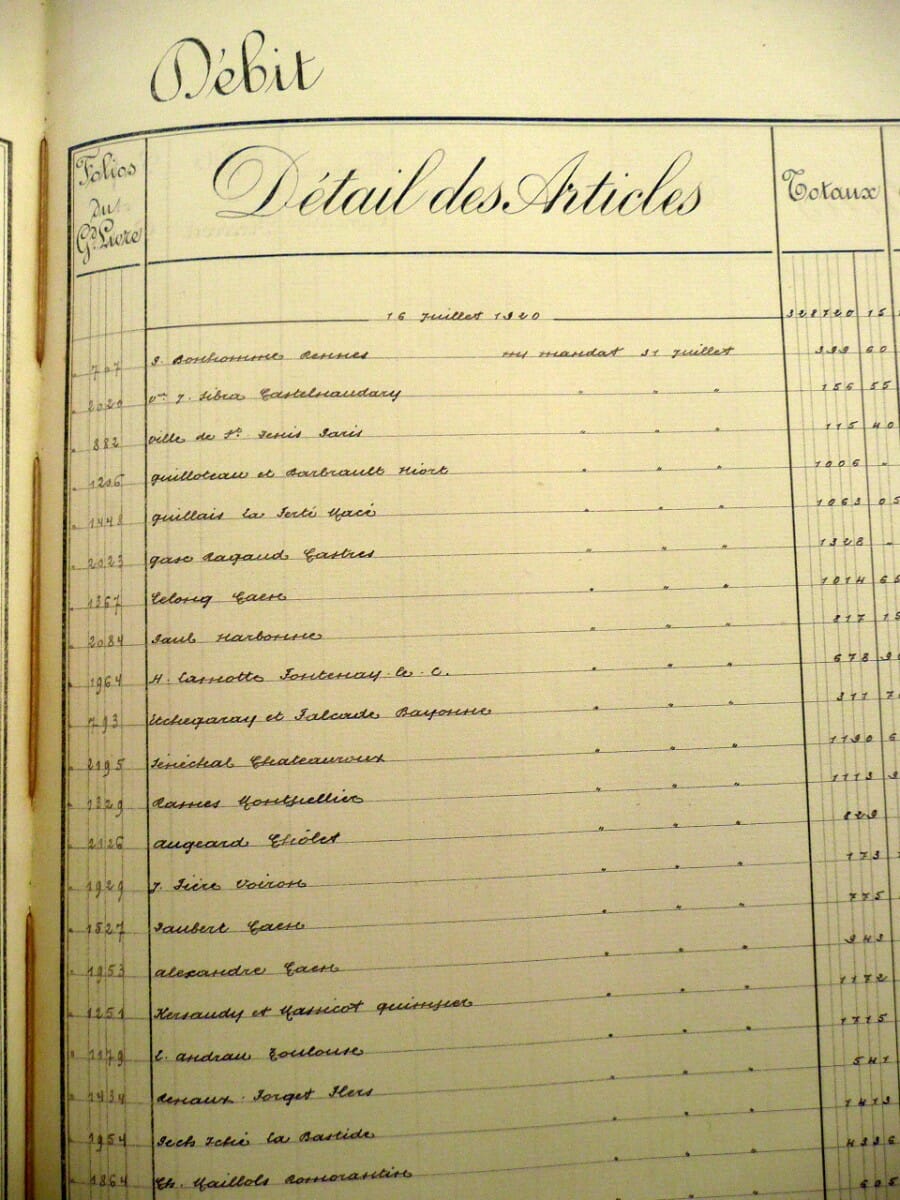 Débit
Folios du Gd. Livre Détail des Articles Totaux
16 Juillet 1920 328720 15
767 Bonhomme Rennes mt mandat 31 Juillet 399 60
2020 Vve J. Sibra Castelnaudary " " " 156 55
882 Ville de St Denis Paris " " " 115 40
1206 Guilloteau et Barbrault Niort " " " 1006 "
1448 Guillais La Ferté Macé " " " 1063 05
2023 Gasc Ragaud Castres " " " 1328 "
1367 Lelong Caen " " " 1014
2084 Narbonne " " " 817 15
1964 H. Lamotte Fontenay-le-C. " " " 678
793 Etchegaray et Falcade Bayonne " " "
2195 Sénéchal Chateauroux " " "
1829 Rames Montpellier " " " 1113
2126 Augeard Chôlet " " "
1929 J. Fière Voiron " " " 173
1527 Caen " " " 775
1953 Alexandre Caen " " "
1251 Kersaudy et Massicot Quimper " " " 1172
L. Andrau Toulouse " " " 1715
1434 Renaux-Forget Flers " " " 541
1954 La Bastide " " "
1864 Ch. Maillols Romorantin " " "
605